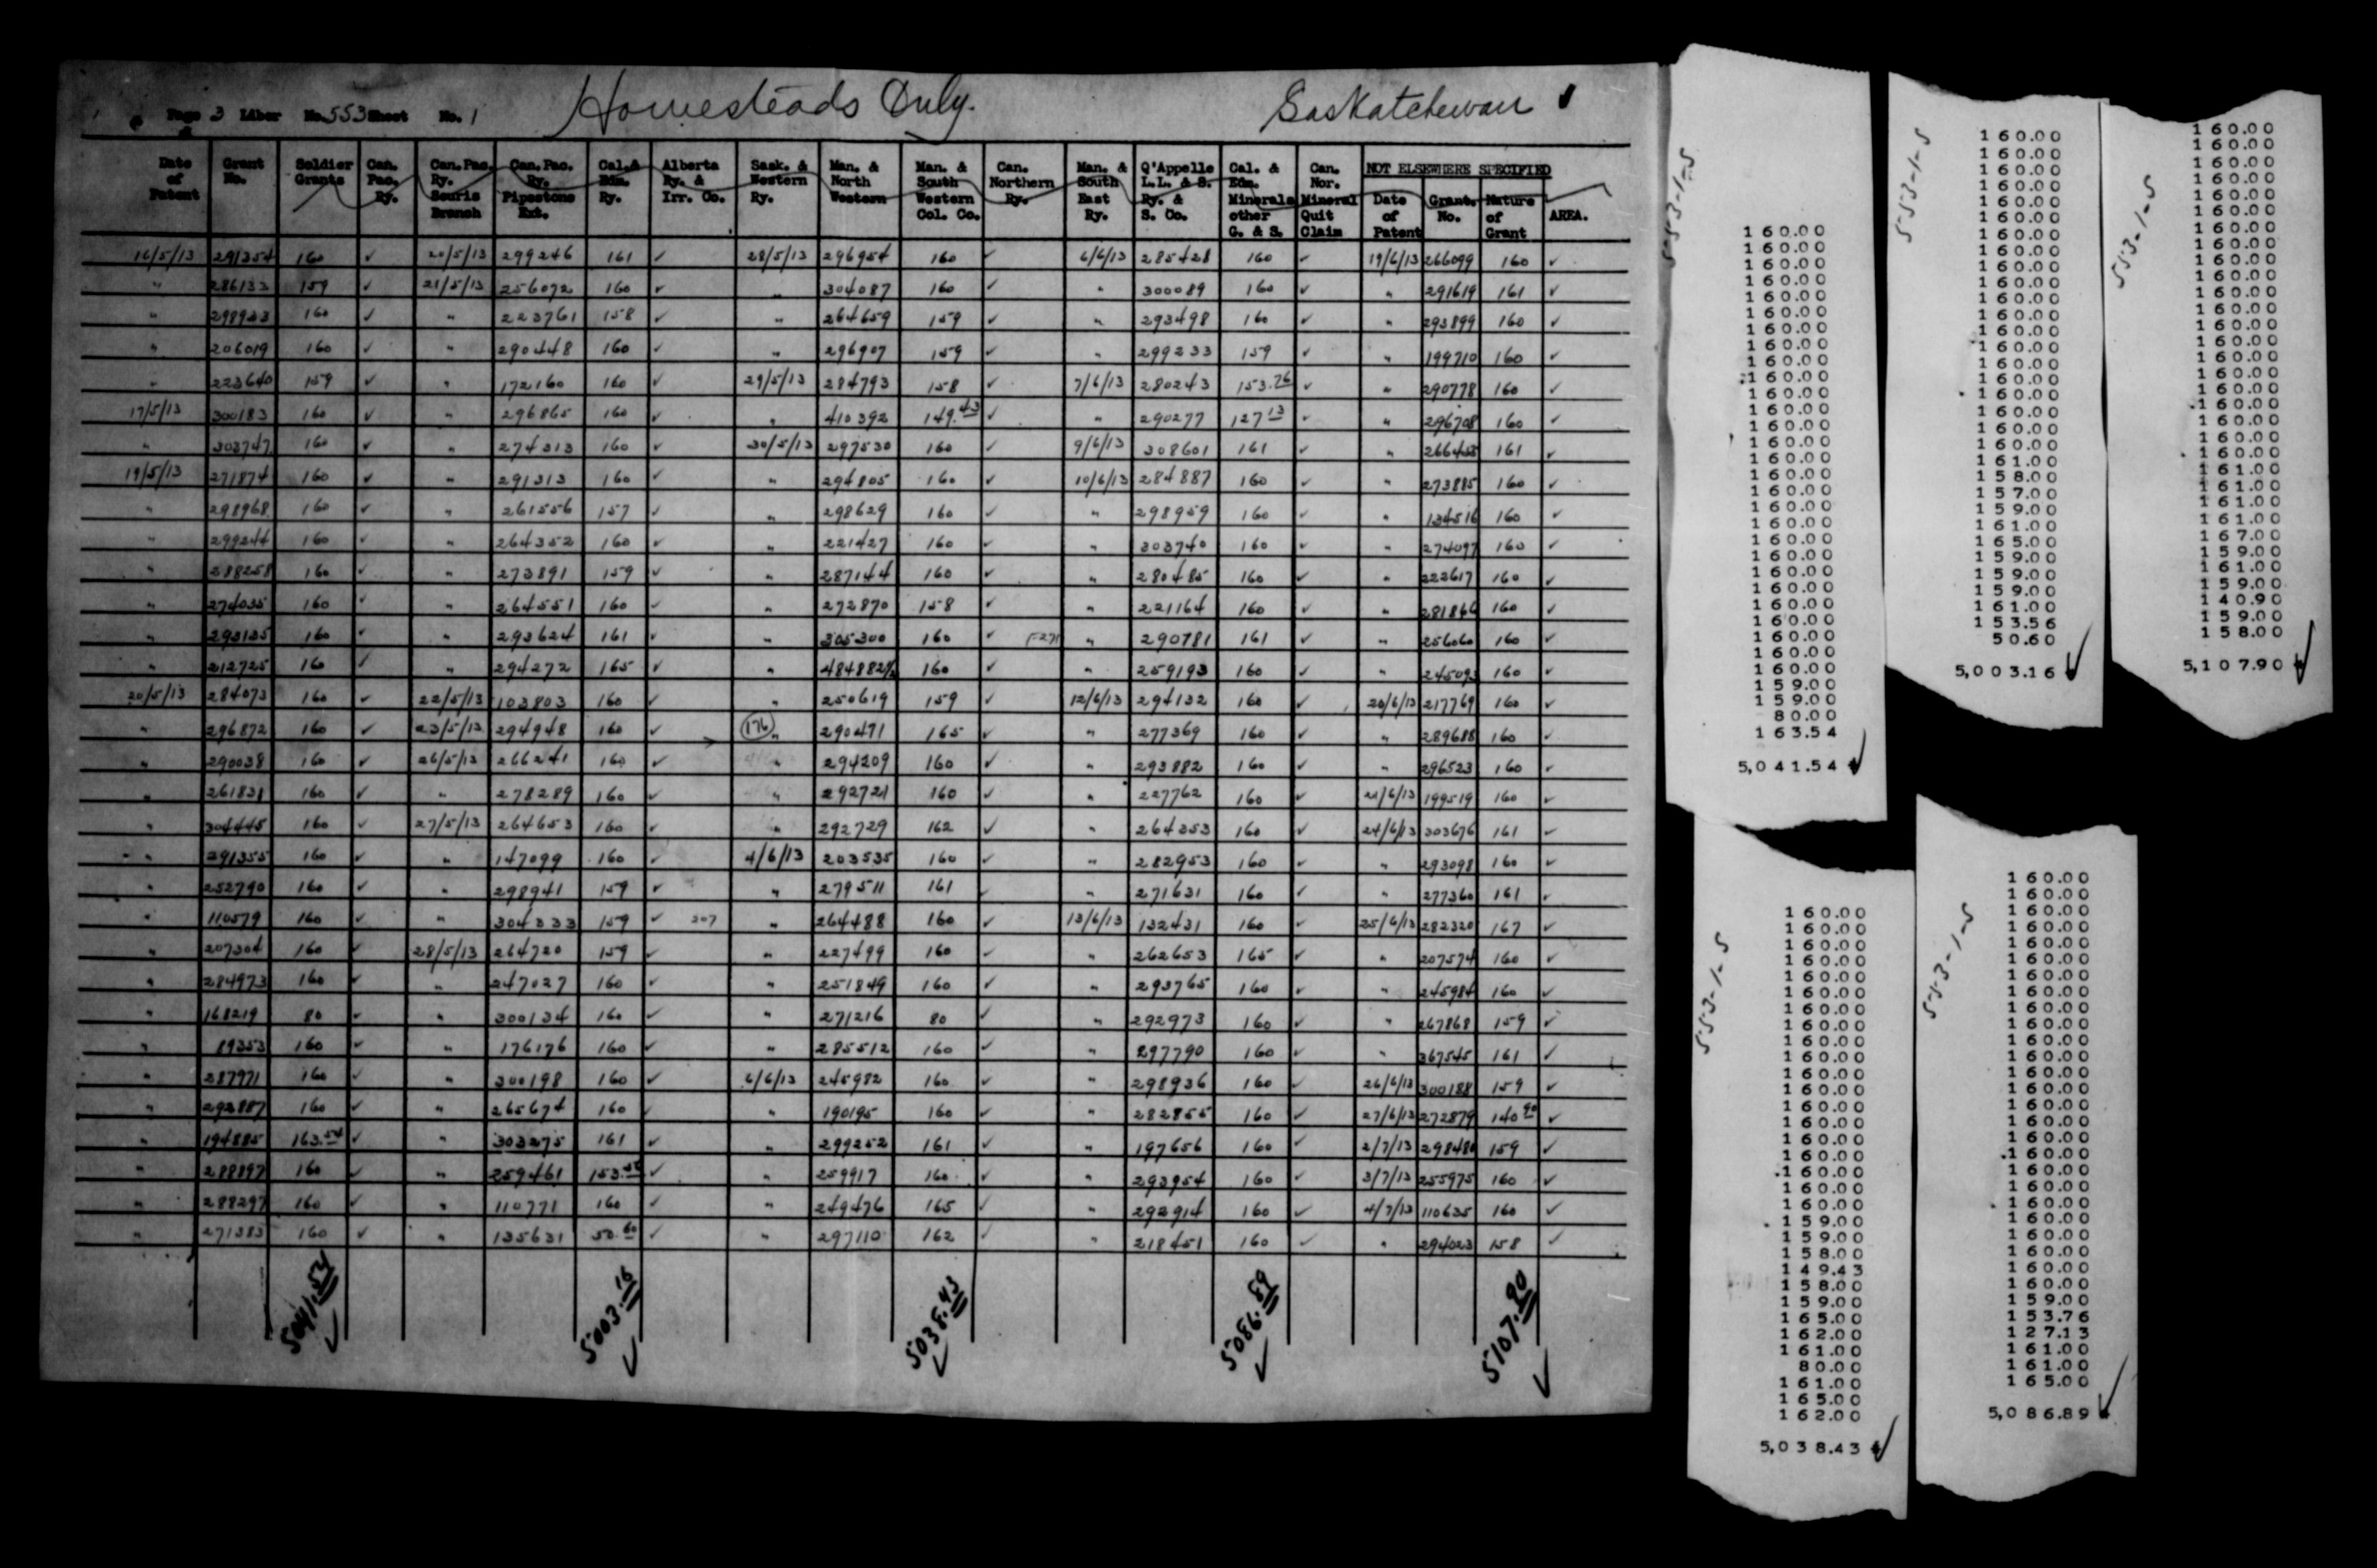 Page 3 Liber No. 553 Sheet No. 1 Homesteads Only. Saskatchewan
Date of Patent | Grant No. | Soldier Grants | Can. Pac. Ry. | Can. Pac. Ry. Souris Branch | Can. Pac. Ry. Pipestone Ext. | Cal. & Edm. Ry. | Alberta Ry. & Irr. Co. | Sask. & Western Ry. | Man. & North Western | Man. & South Western Col. Co. | Can. Northern Ry. | Man. & South East Ry. | Q'Appelle L.L. & S. Ry. & S. Co. | Cal. & Edm. Minerals other G. & S. | Can. Nor. Mineral Quit Claim | NOT ELSEWHERE SPECIFIED Date of Patent | Grant No. | Nature of Grant | AREA.
16/5/13 291354 160 ✓ 20/5/13 299246 161 ✓ 28/5/13 296954 160 ✓ 6/6/13 285428 160 ✓ 19/6/13 266099 160 ✓
" 286133 159 ✓ 21/5/13 256072 160 ✓ " 304087 160 ✓ " 300089 160 ✓ " 291619 161 ✓
" 298923 160 ✓ " 223761 158 ✓ " 264659 159 ✓ " 293498 160 ✓ " 293899 160 ✓
" 206019 160 ✓ " 290448 160 ✓ " 296907 159 ✓ " 299233 159 ✓ " 199710 160 ✓
" 223640 159 ✓ " 172160 160 ✓ 29/5/13 284793 158 ✓ 7/6/13 280243 153.76 ✓ " 290778 160 ✓
17/5/13 300183 160 ✓ " 296865 160 ✓ " 410392 149.43 ✓ " 290277 127.13 ✓ " 296708 160 ✓
" 303747 160 ✓ " 274313 160 ✓ 30/5/13 297530 160 ✓ 9/6/13 308601 161 ✓ " 266455 161 ✓
19/5/13 271874 160 ✓ " 291313 160 ✓ " 294805 160 ✓ 10/6/13 284887 160 ✓ " 273885 160 ✓
" 298968 160 ✓ " 261556 157 ✓ " 298629 160 ✓ " 298959 160 ✓ " 134516 160 ✓
" 299244 160 ✓ " 264352 160 ✓ " 221427 160 ✓ " 303740 160 ✓ " 274097 160 ✓
" 288258 160 ✓ " 273891 159 ✓ " 287144 160 ✓ " 280485 160 ✓ " 222617 160 ✓
" 274035 160 ✓ " 264551 160 ✓ " 272870 158 ✓ " 221164 160 ✓ " 281866 160 ✓
" 293135 160 ✓ " 293624 161 ✓ " 305300 160 ✓ " 290781 161 ✓ " 256060 160 ✓
" 212725 160 ✓ " 294272 165 ✓ " 484882½ 160 ✓ " 259193 160 ✓ " 245093 160 ✓
20/5/13 284073 160 ✓ 22/5/13 103803 160 ✓ " 250619 159 ✓ 12/6/13 294132 160 ✓ 20/6/13 217769 160 ✓
" 296872 160 ✓ 23/5/13 294948 160 ✓ 176 " 290471 165 ✓ " 277369 160 ✓ " 289688 160 ✓
" 290038 160 ✓ 26/5/13 266241 160 ✓ " 294209 160 ✓ " 293882 160 ✓ " 296523 160 ✓
" 261831 160 ✓ " 278289 160 ✓ " 292721 160 ✓ " 227762 160 ✓ 21/6/13 199519 160 ✓
" 304445 160 ✓ 27/5/13 264653 160 ✓ " 292729 162 ✓ " 264353 160 ✓ 24/6/13 303676 161 ✓
" 291355 160 ✓ " 147099 160 ✓ 4/6/13 203535 160 ✓ " 282953 160 ✓ " 293098 160 ✓
" 252790 160 ✓ " 298941 159 ✓ " 279511 161 ✓ " 271631 160 ✓ " 277360 161 ✓
" 110579 160 ✓ " 304333 159 ✓ 207 " 264488 160 ✓ 13/6/13 132431 160 ✓ 25/6/13 282320 167 ✓
" 207304 160 ✓ 28/5/13 264720 159 ✓ " 227499 160 ✓ " 262653 165 ✓ " 207574 160 ✓
" 284973 160 ✓ " 247027 160 ✓ " 251849 160 ✓ " 293765 160 ✓ " 245984 160 ✓
" 168219 80 ✓ " 300134 160 ✓ " 271216 80 ✓ " 292973 160 ✓ " 267868 159 ✓
" 89353 160 ✓ " 176176 160 ✓ " 285512 160 ✓ " 297790 160 ✓ " 367545 161 ✓
" 287971 160 ✓ " 300198 160 ✓ 6/6/13 245982 160 ✓ " 298936 160 ✓ 26/6/13 300188 159 ✓
" 292887 160 ✓ " 265674 160 ✓ " 190195 160 ✓ " 282855 160 ✓ 27/6/13 272879 140.90 ✓
" 194885 163.54 ✓ " 303275 161 ✓ " 299252 161 ✓ " 197656 160 ✓ 2/7/13 298480 159 ✓
" 288897 160 ✓ " 259461 153.56 ✓ " 259917 160 ✓ " 293954 160 ✓ 3/7/13 255975 160 ✓
" 288297 160 ✓ " 110771 160 ✓ " 249476 165 ✓ " 292914 160 ✓ 4/7/13 110635 160 ✓
" 271383 160 ✓ " 135631 50.60 ✓ " 297110 162 ✓ " 218451 160 ✓ " 294023 158 ✓
5041.54 ✓ 5003.16 ✓ 5038.43 ✓ 5086.89 ✓ 5107.90 ✓
553-1-5
160.00
160.00
160.00
160.00
160.00
160.00
160.00
160.00
160.00
160.00
160.00
160.00
160.00
160.00
160.00
160.00
160.00
160.00
160.00
160.00
160.00
160.00
160.00
160.00
160.00
160.00
160.00
160.00
159.00
159.00
80.00
163.54
5,041.54 ✓
553-1-5
160.00
160.00
160.00
160.00
160.00
160.00
160.00
160.00
160.00
160.00
160.00
160.00
160.00
160.00
160.00
160.00
160.00
160.00
160.00
160.00
161.00
158.00
157.00
159.00
161.00
165.00
159.00
159.00
159.00
161.00
153.56
50.60
5,003.16 ✓
553-1-5
160.00
160.00
160.00
160.00
160.00
160.00
160.00
160.00
160.00
160.00
160.00
160.00
160.00
160.00
160.00
160.00
160.00
160.00
160.00
160.00
160.00
161.00
161.00
161.00
161.00
167.00
159.00
161.00
159.00
140.90
159.00
158.00
5,107.90 ✓
553-1-5
160.00
160.00
160.00
160.00
160.00
160.00
160.00
160.00
160.00
160.00
160.00
160.00
160.00
160.00
160.00
160.00
160.00
160.00
160.00
159.00
159.00
158.00
149.43
158.00
159.00
165.00
162.00
161.00
80.00
161.00
165.00
162.00
5,038.43 ✓
553-1-5
160.00
160.00
160.00
160.00
160.00
160.00
160.00
160.00
160.00
160.00
160.00
160.00
160.00
160.00
160.00
160.00
160.00
160.00
160.00
160.00
160.00
160.00
160.00
160.00
160.00
160.00
159.00
153.76
127.13
161.00
161.00
165.00
5,086.89 ✓